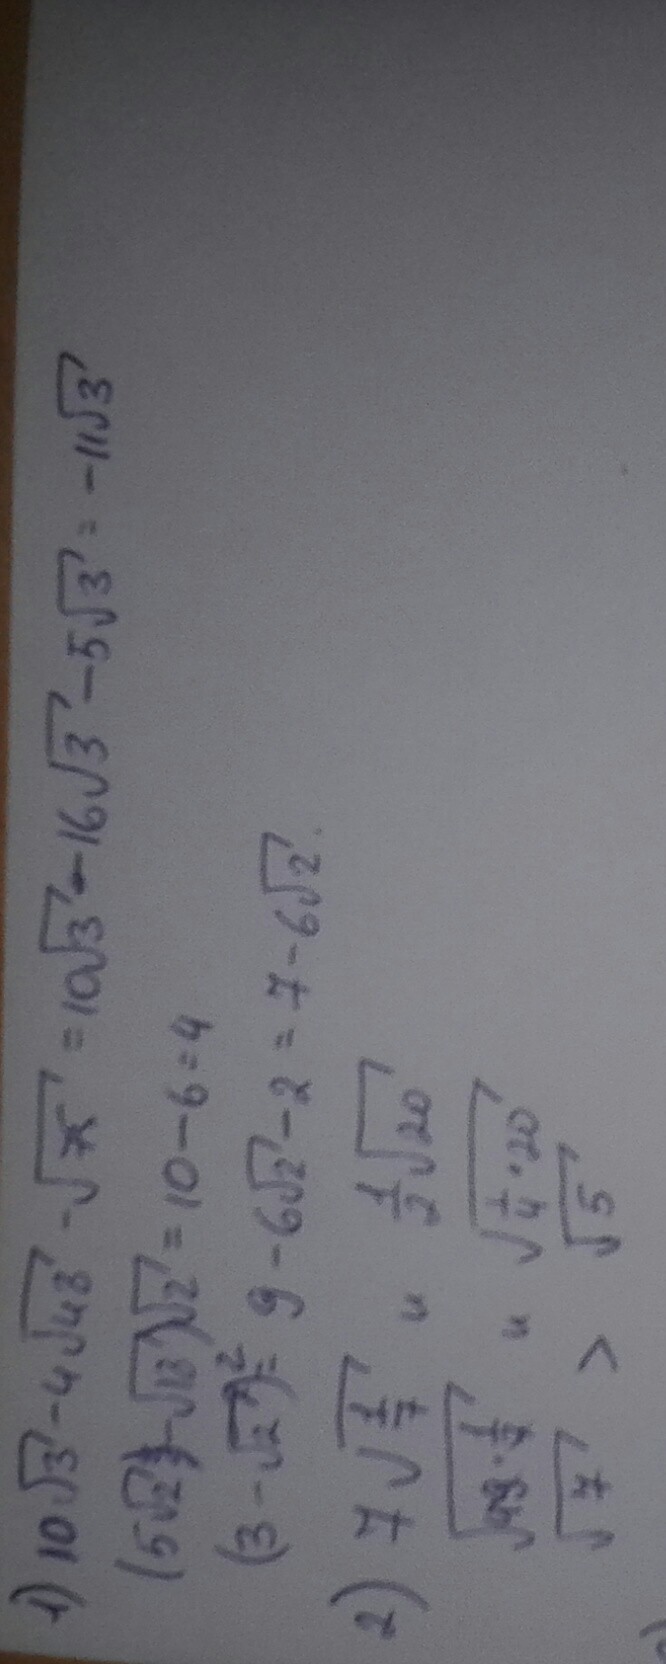 1) 10√3 - 4√48 - √75 = 10√3 - 16√3 - 5√3 = -11√3
(5√2 - √18)√2 = 10 - 6 = 4
(3 - √2)² = 9 - 6√2 - 2 = 7 - 6√2.
2) 7√1/7 и 1/2√20
√49·1/7 и √1/4·20
√7 > √5